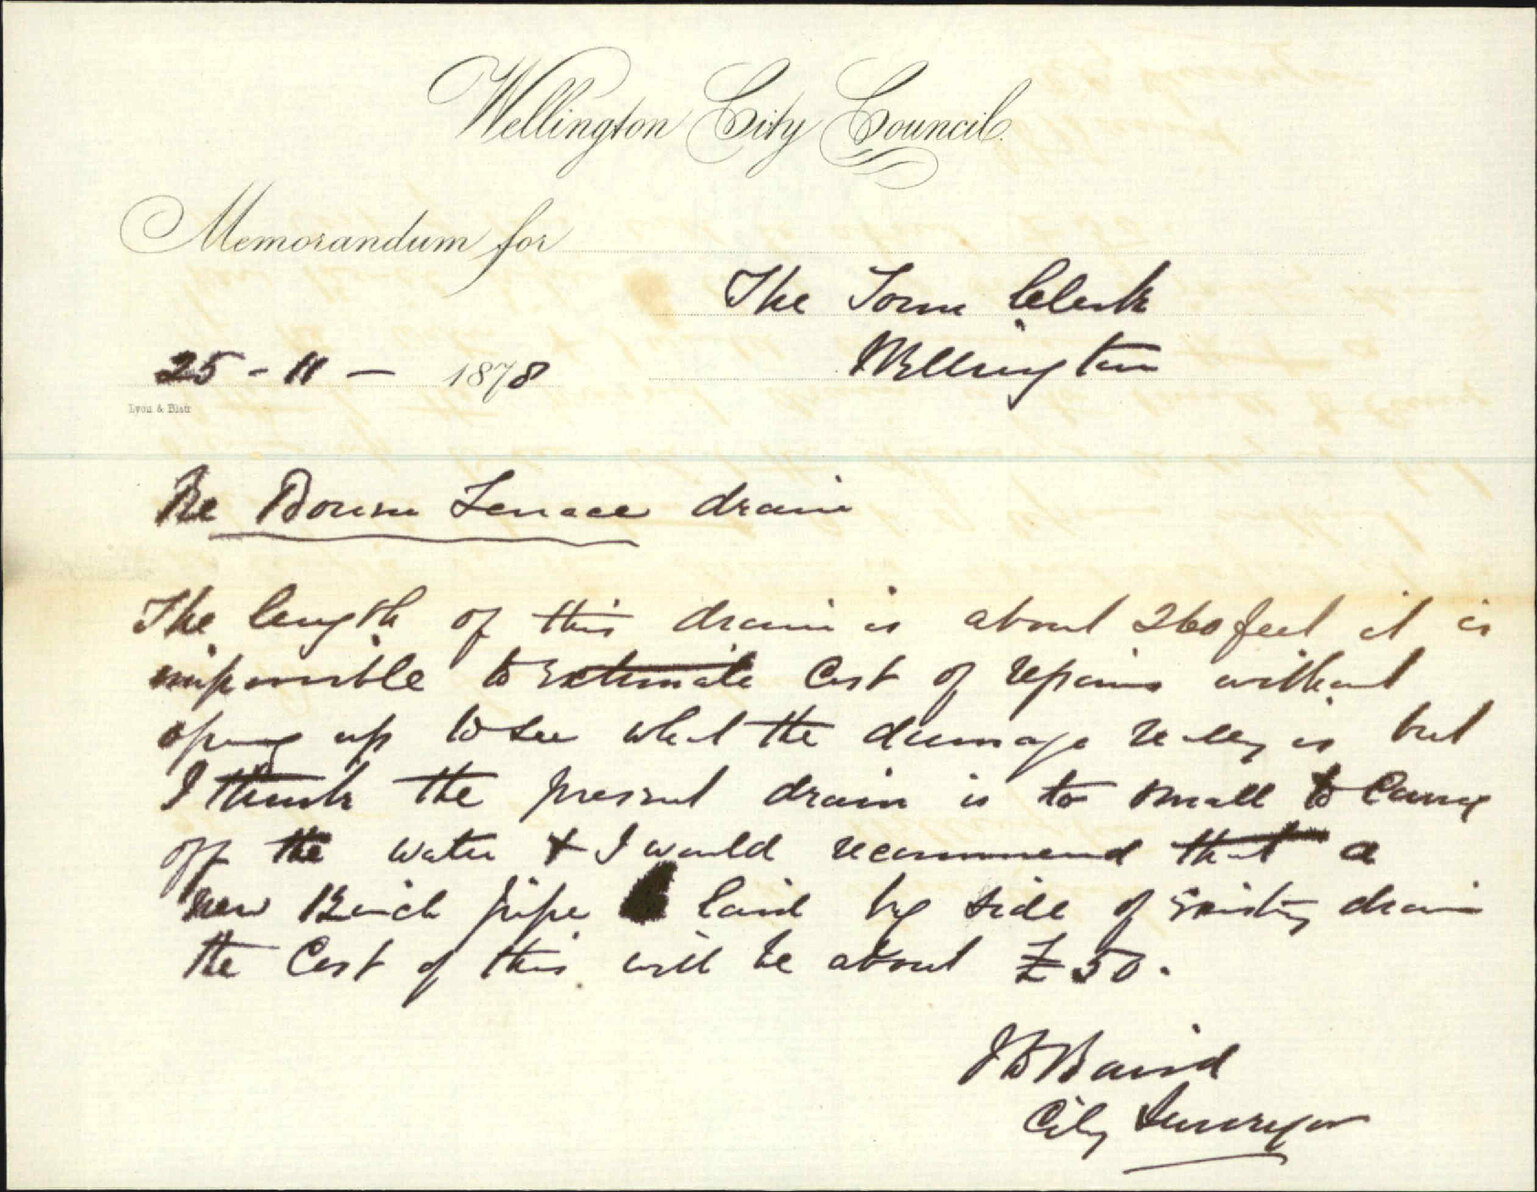 Wellington City Council.
Memorandum for
The Town Clerk
Wellington
25 - 11 - 1878
Lyon & Blair
Re Boum Terrace drain
The length of this drain is about 260 feet it is
impossible to Estimate Cost of repairs without
opening up to see what the damage really is but
I think the present drain is to small to Carry
off the water & I would recommend that a
new 12 inch pipe laid by side of Existing drain
the Cost of this will be about £50.
J D Baird
City Surveyor